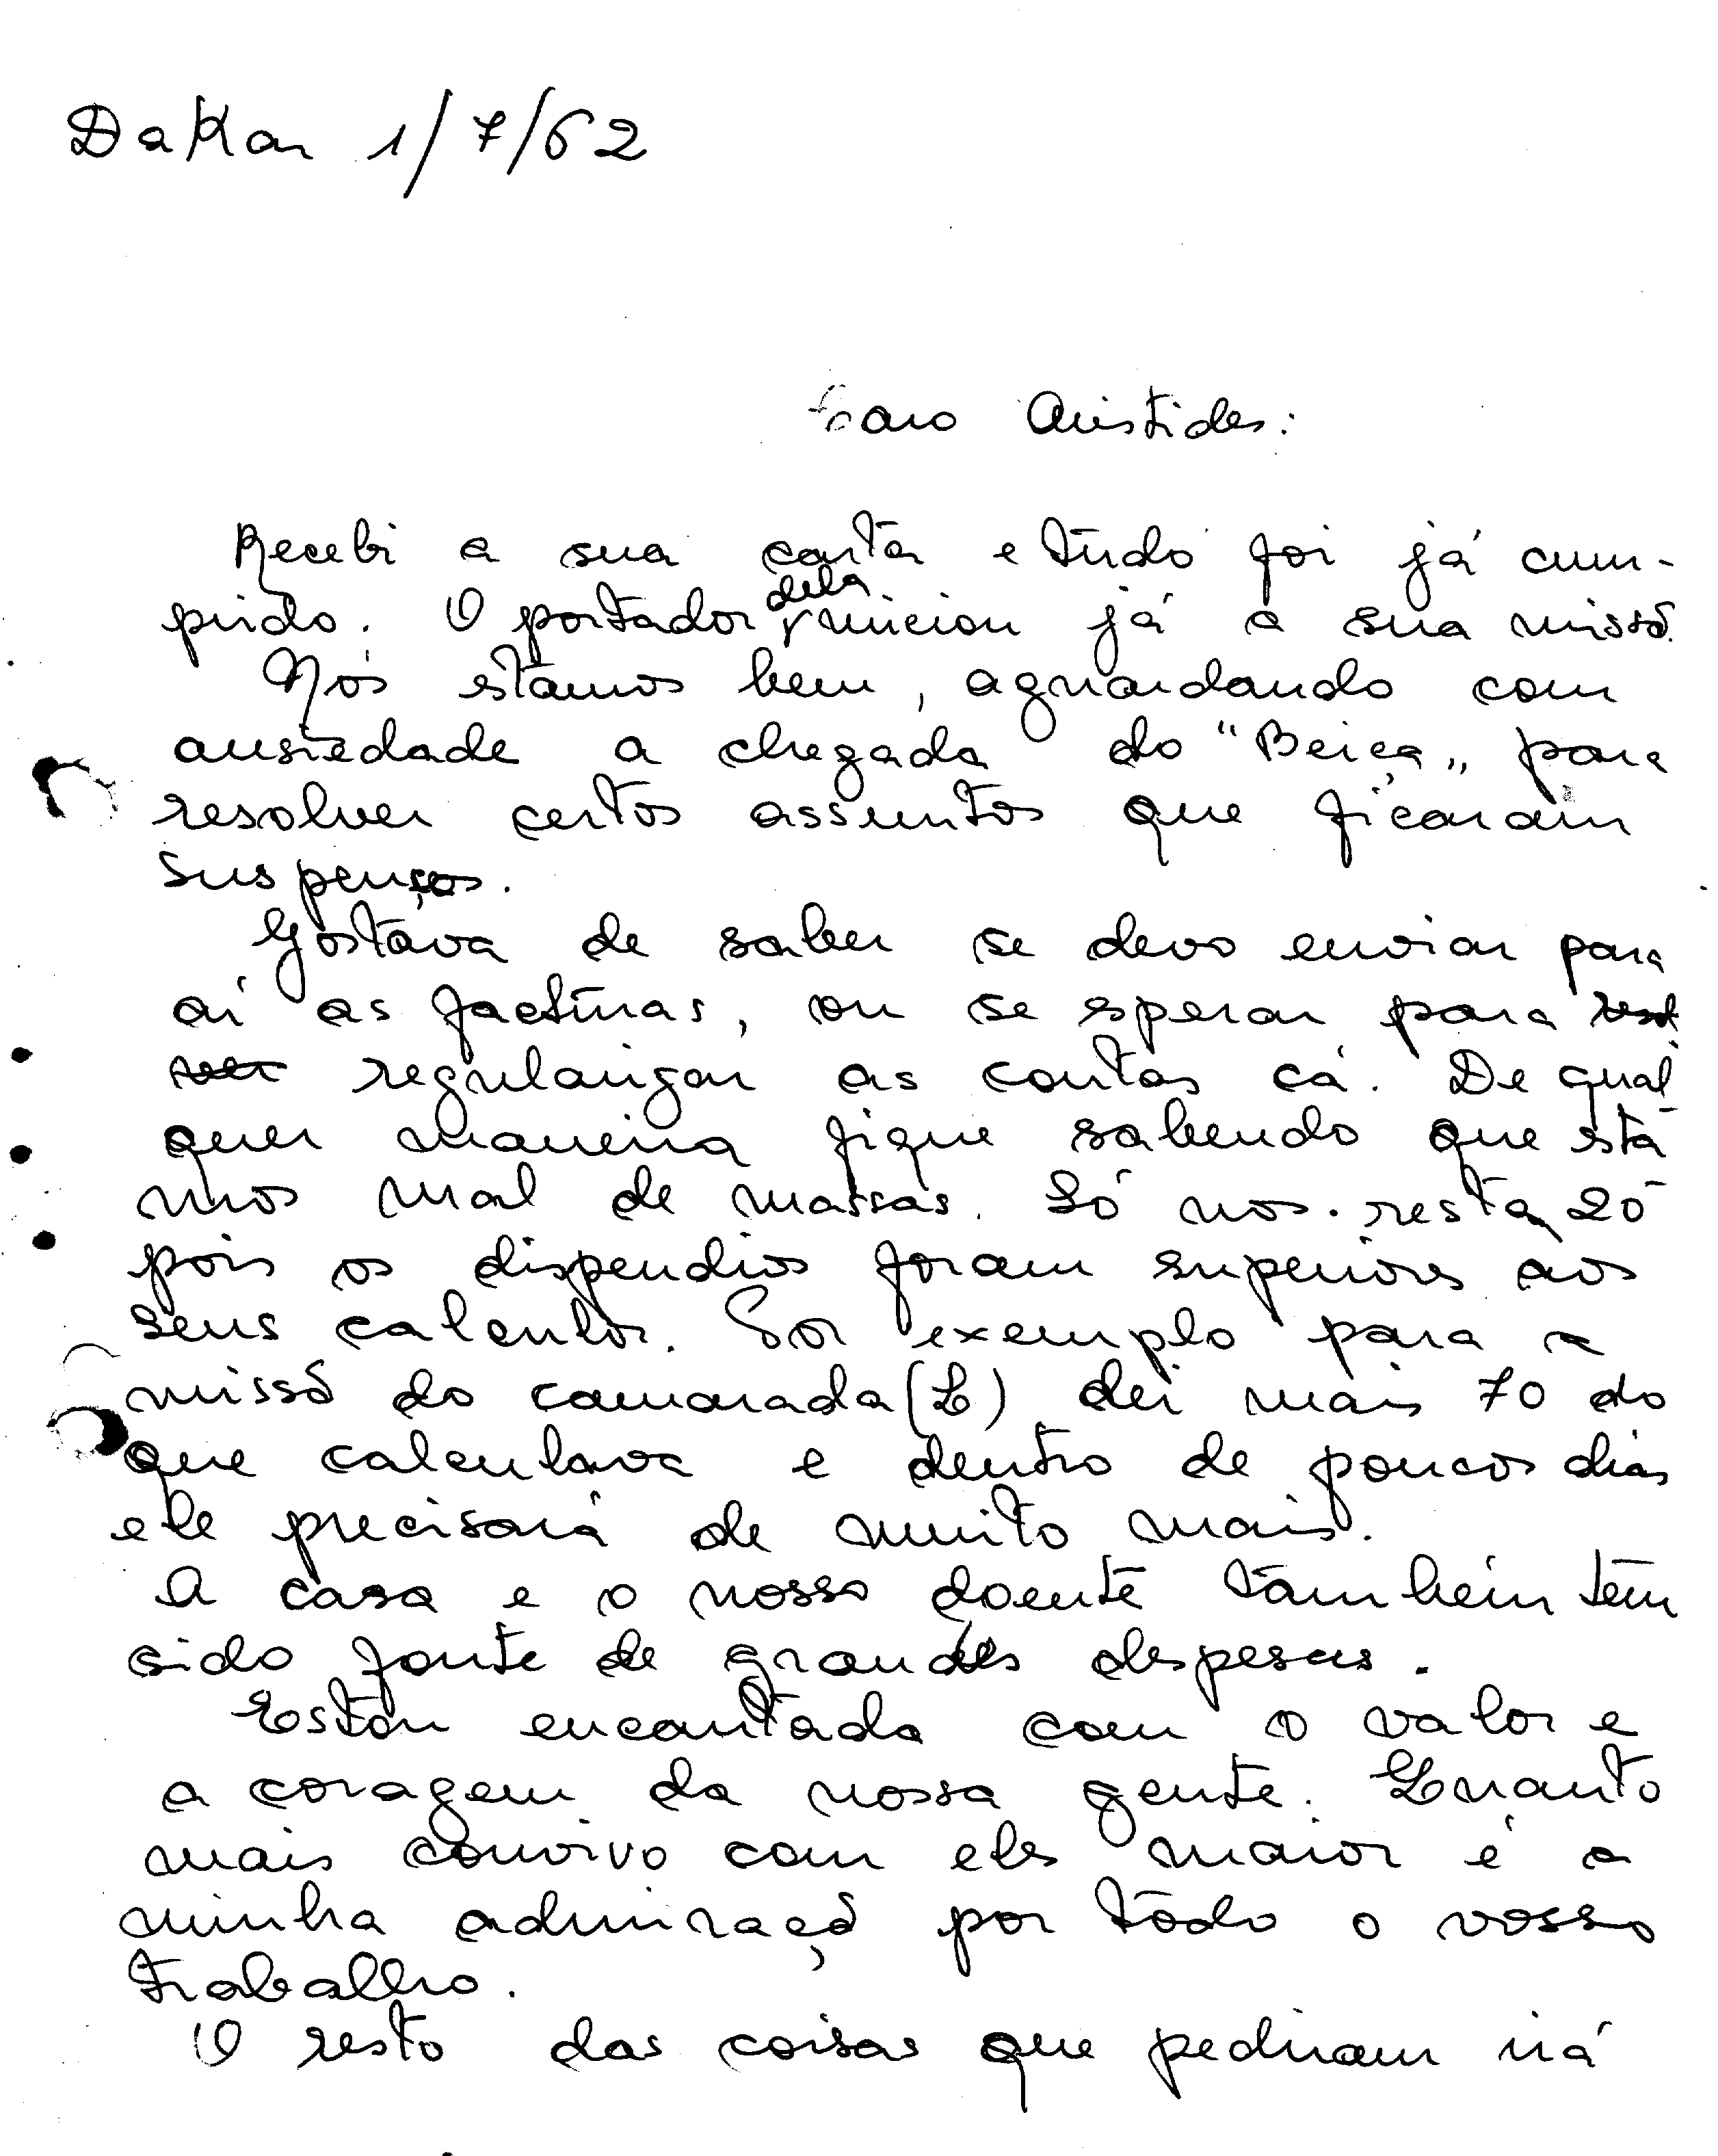 Dakar 1/7/62
Caro Aristides:
Recebi a sua carta e tudo foi já cum-
prido. O portador dela iniciou já a sua missã.
Nós estamos bem, aguardando com
ansiedade a chegada do "Beiça" para
resolver certos assuntos que ficaram
suspensos.
Gostava de saber se devo enviar para
aí as facturas, ou se esperar para
regularizar as contas cá. De qual
quer maneira fique sabendo que está
mos mal de massas. Só nos resta 20
pois os dispendios foram superiores aos
seus calculos. Por exemplo para a
missã do camarada (L) dei mais 70 do
que calculava e dentro de poucos dias
ele precisará de muito mais.
A casa e o nosso doente também têm
sido fonte de grandes despesas.
Estou encantada com o valor e
a coragem da nossa gente. Quanto
mais convivo com eles maior é a
minha admiraçã por todo o vosso
trabalho.
O resto das coisas que pediram irá